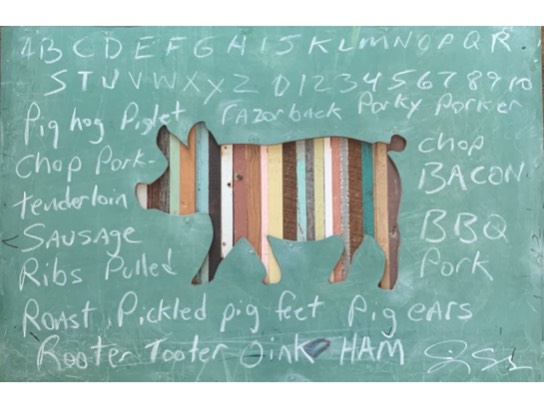 A B C D E F G H I J K L M N O P Q R
S T U V W X Y Z 0 1 2 3 4 5 6 7 8 9 10
Pig hog Piglet Razorback Porky Porker
Chop Pork-
tenderloin
Sausage
Ribs Pulled
chop
BACON
BBQ
Pork
Roast Pickled pig feet Pig ears
Rooter Tooter Oink HAM